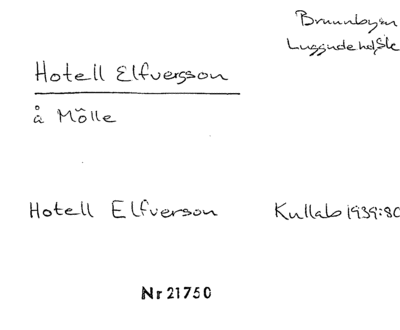 Brunnbysn
Luggude hd, Sk
Hotell Elfversson
å Mölle
Hotell Elfverson Kullab 1939:80
Nr 21750